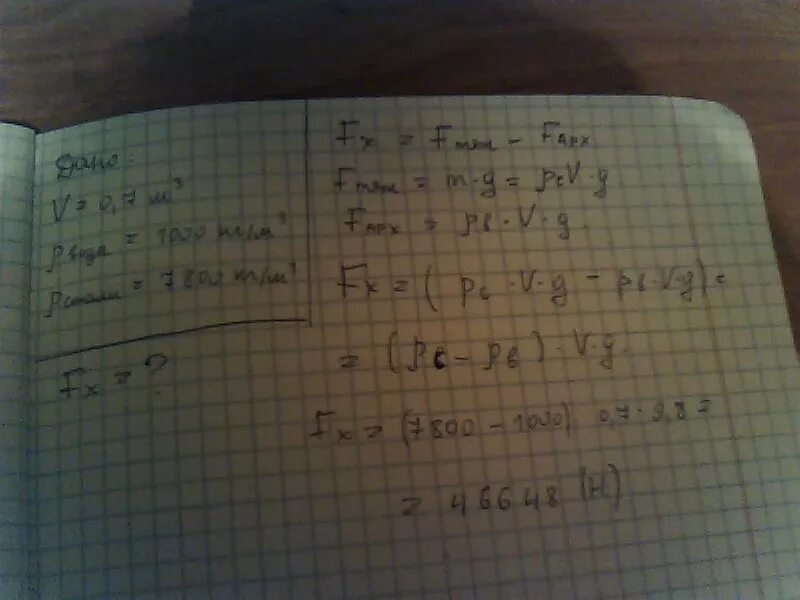 Дано:
V = 0,7 м³
ρвода = 1000 кг/м³
ρстали = 7800 кг/м³
Fx = ?
Fx = Fтяж - FАрх
Fтяж = m·g = ρcV·g
FАрх = ρв·V·g.
Fx = (ρc·V·g - ρв·V·g) =
= (ρc - ρв)·V·g.
Fx = (7800 - 1000) 0,7·9,8 =
= 46648 (Н)